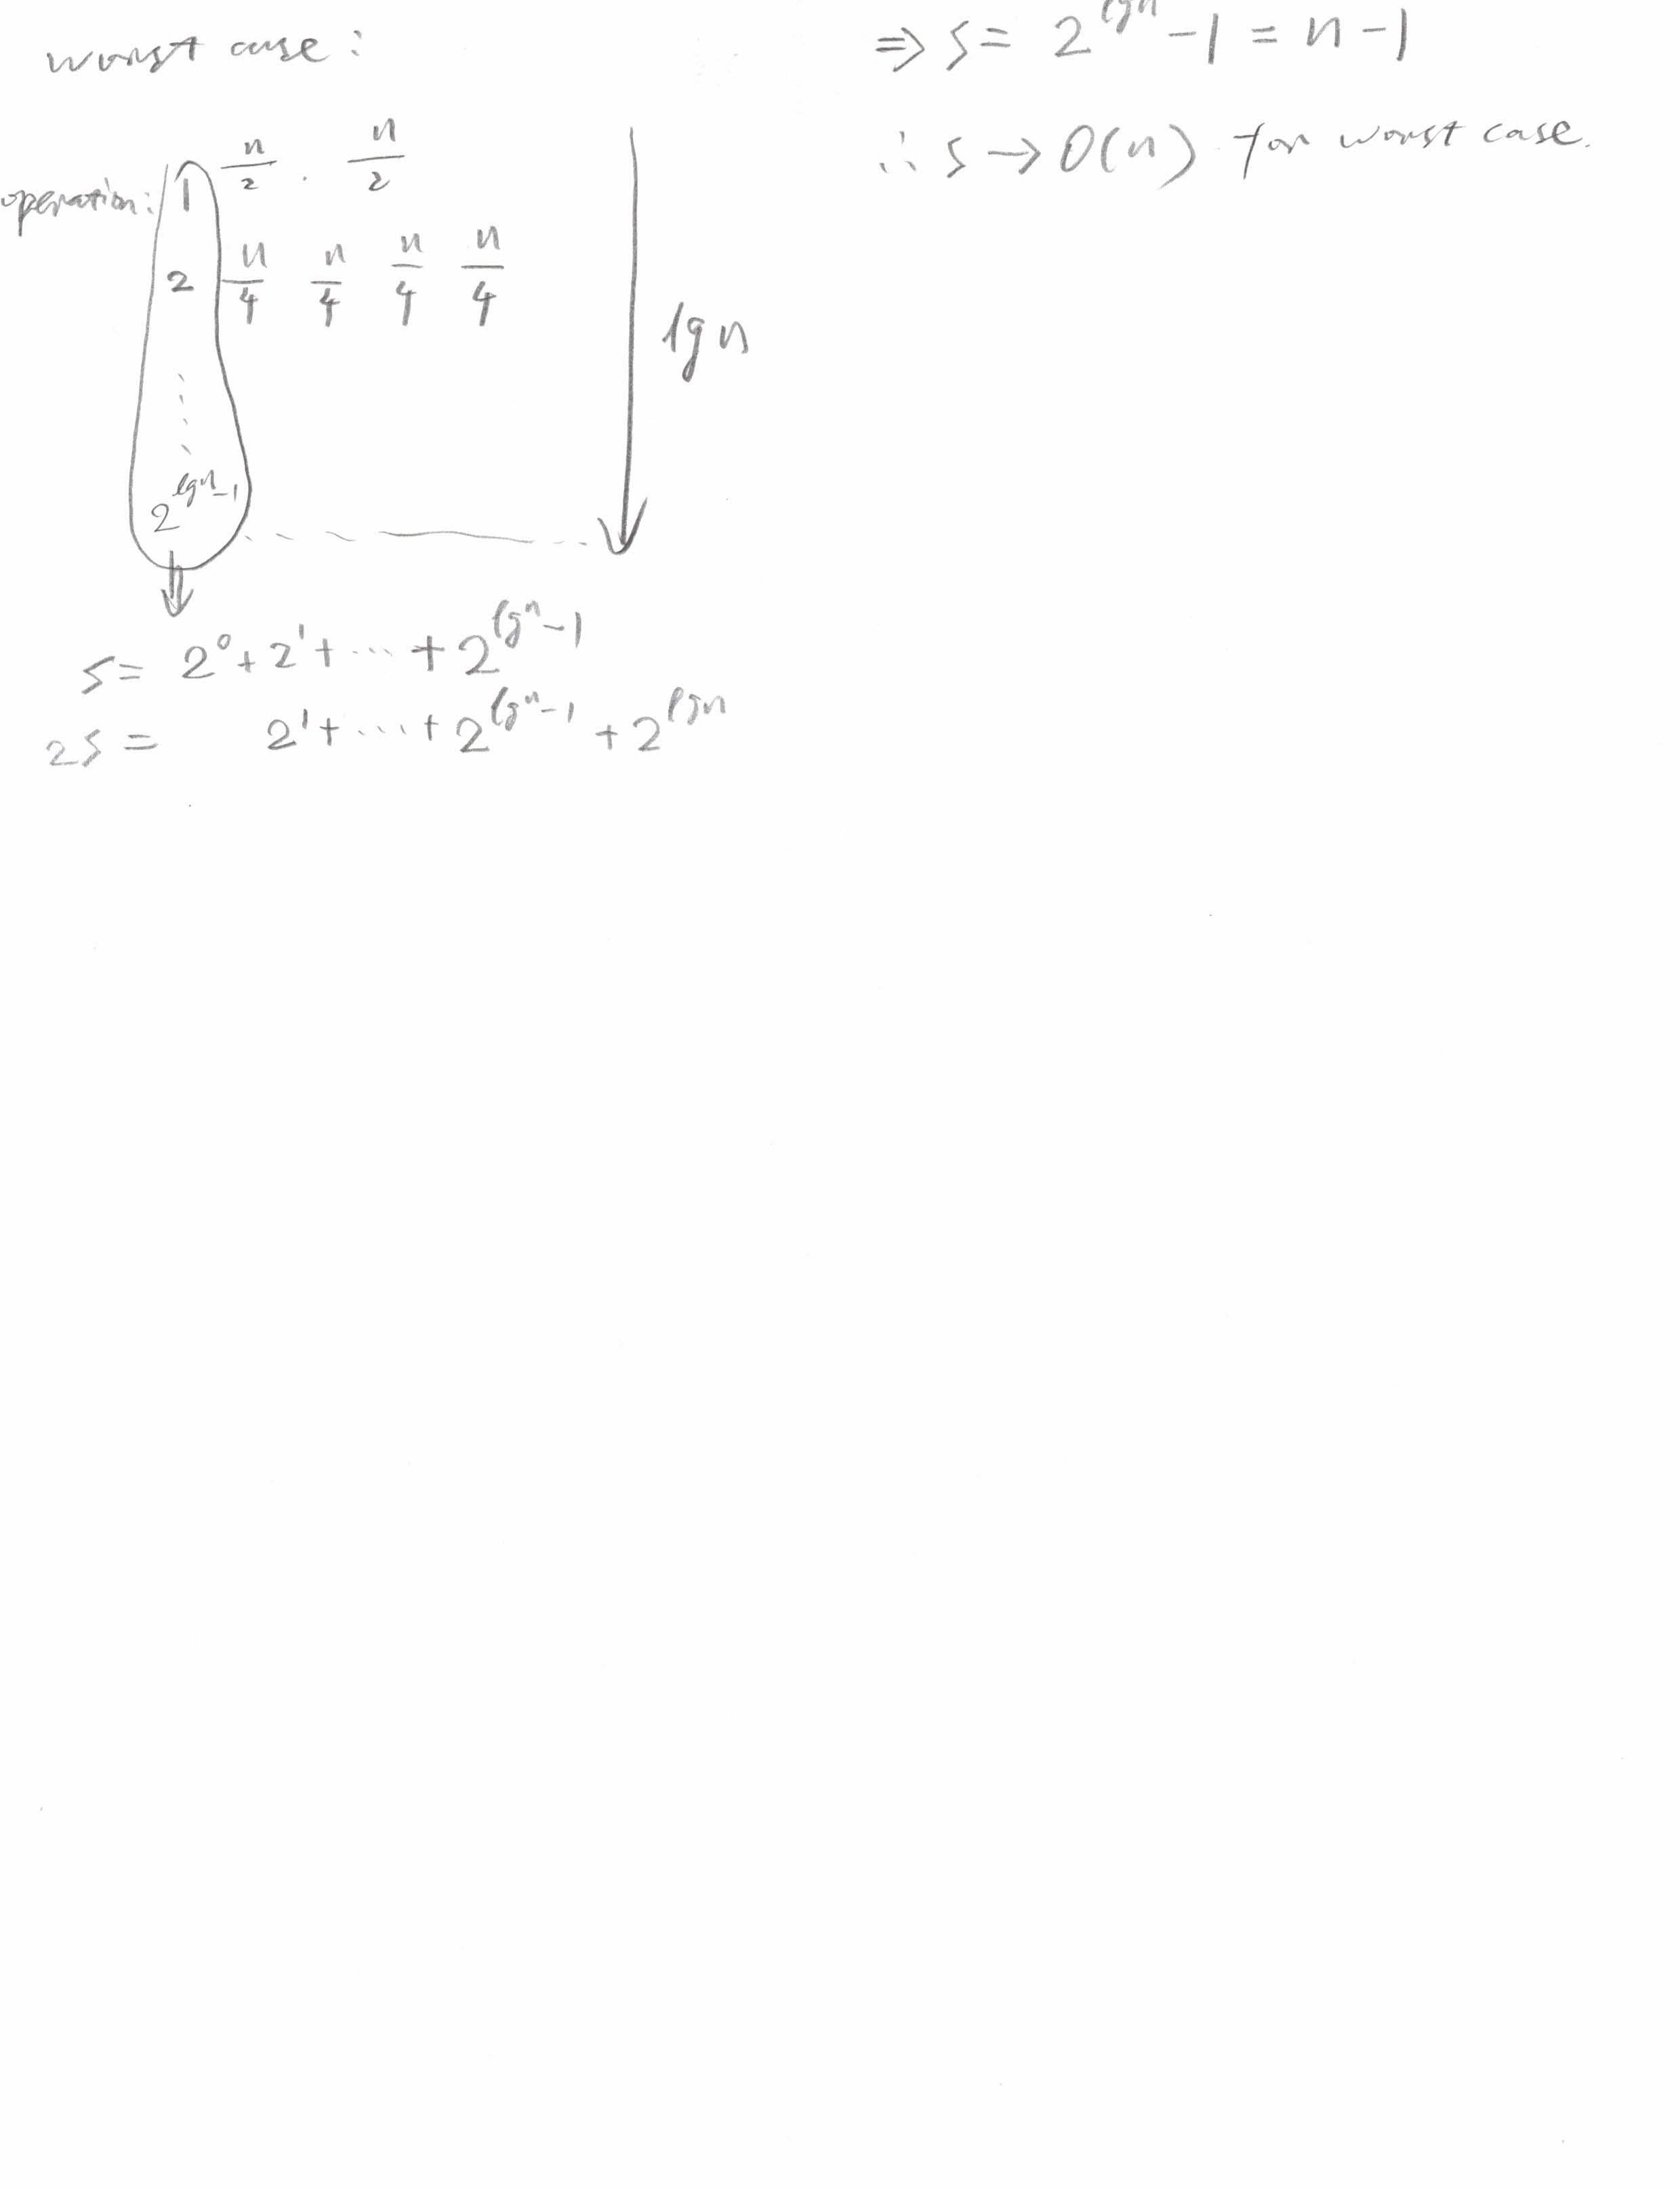 worst case:
operation: 1 n/2 . n/2
2 n/4 n/4 n/4 n/4
lg n
2^{lgn-1}
S = 2^0 + 2^1 + ... + 2^{lgn-1}
2S = 2^1 + ... + 2^{lgn-1} + 2^{lgn}
⇒ S = 2^{lgn} - 1 = n - 1
∴ S → O(n) for worst case.